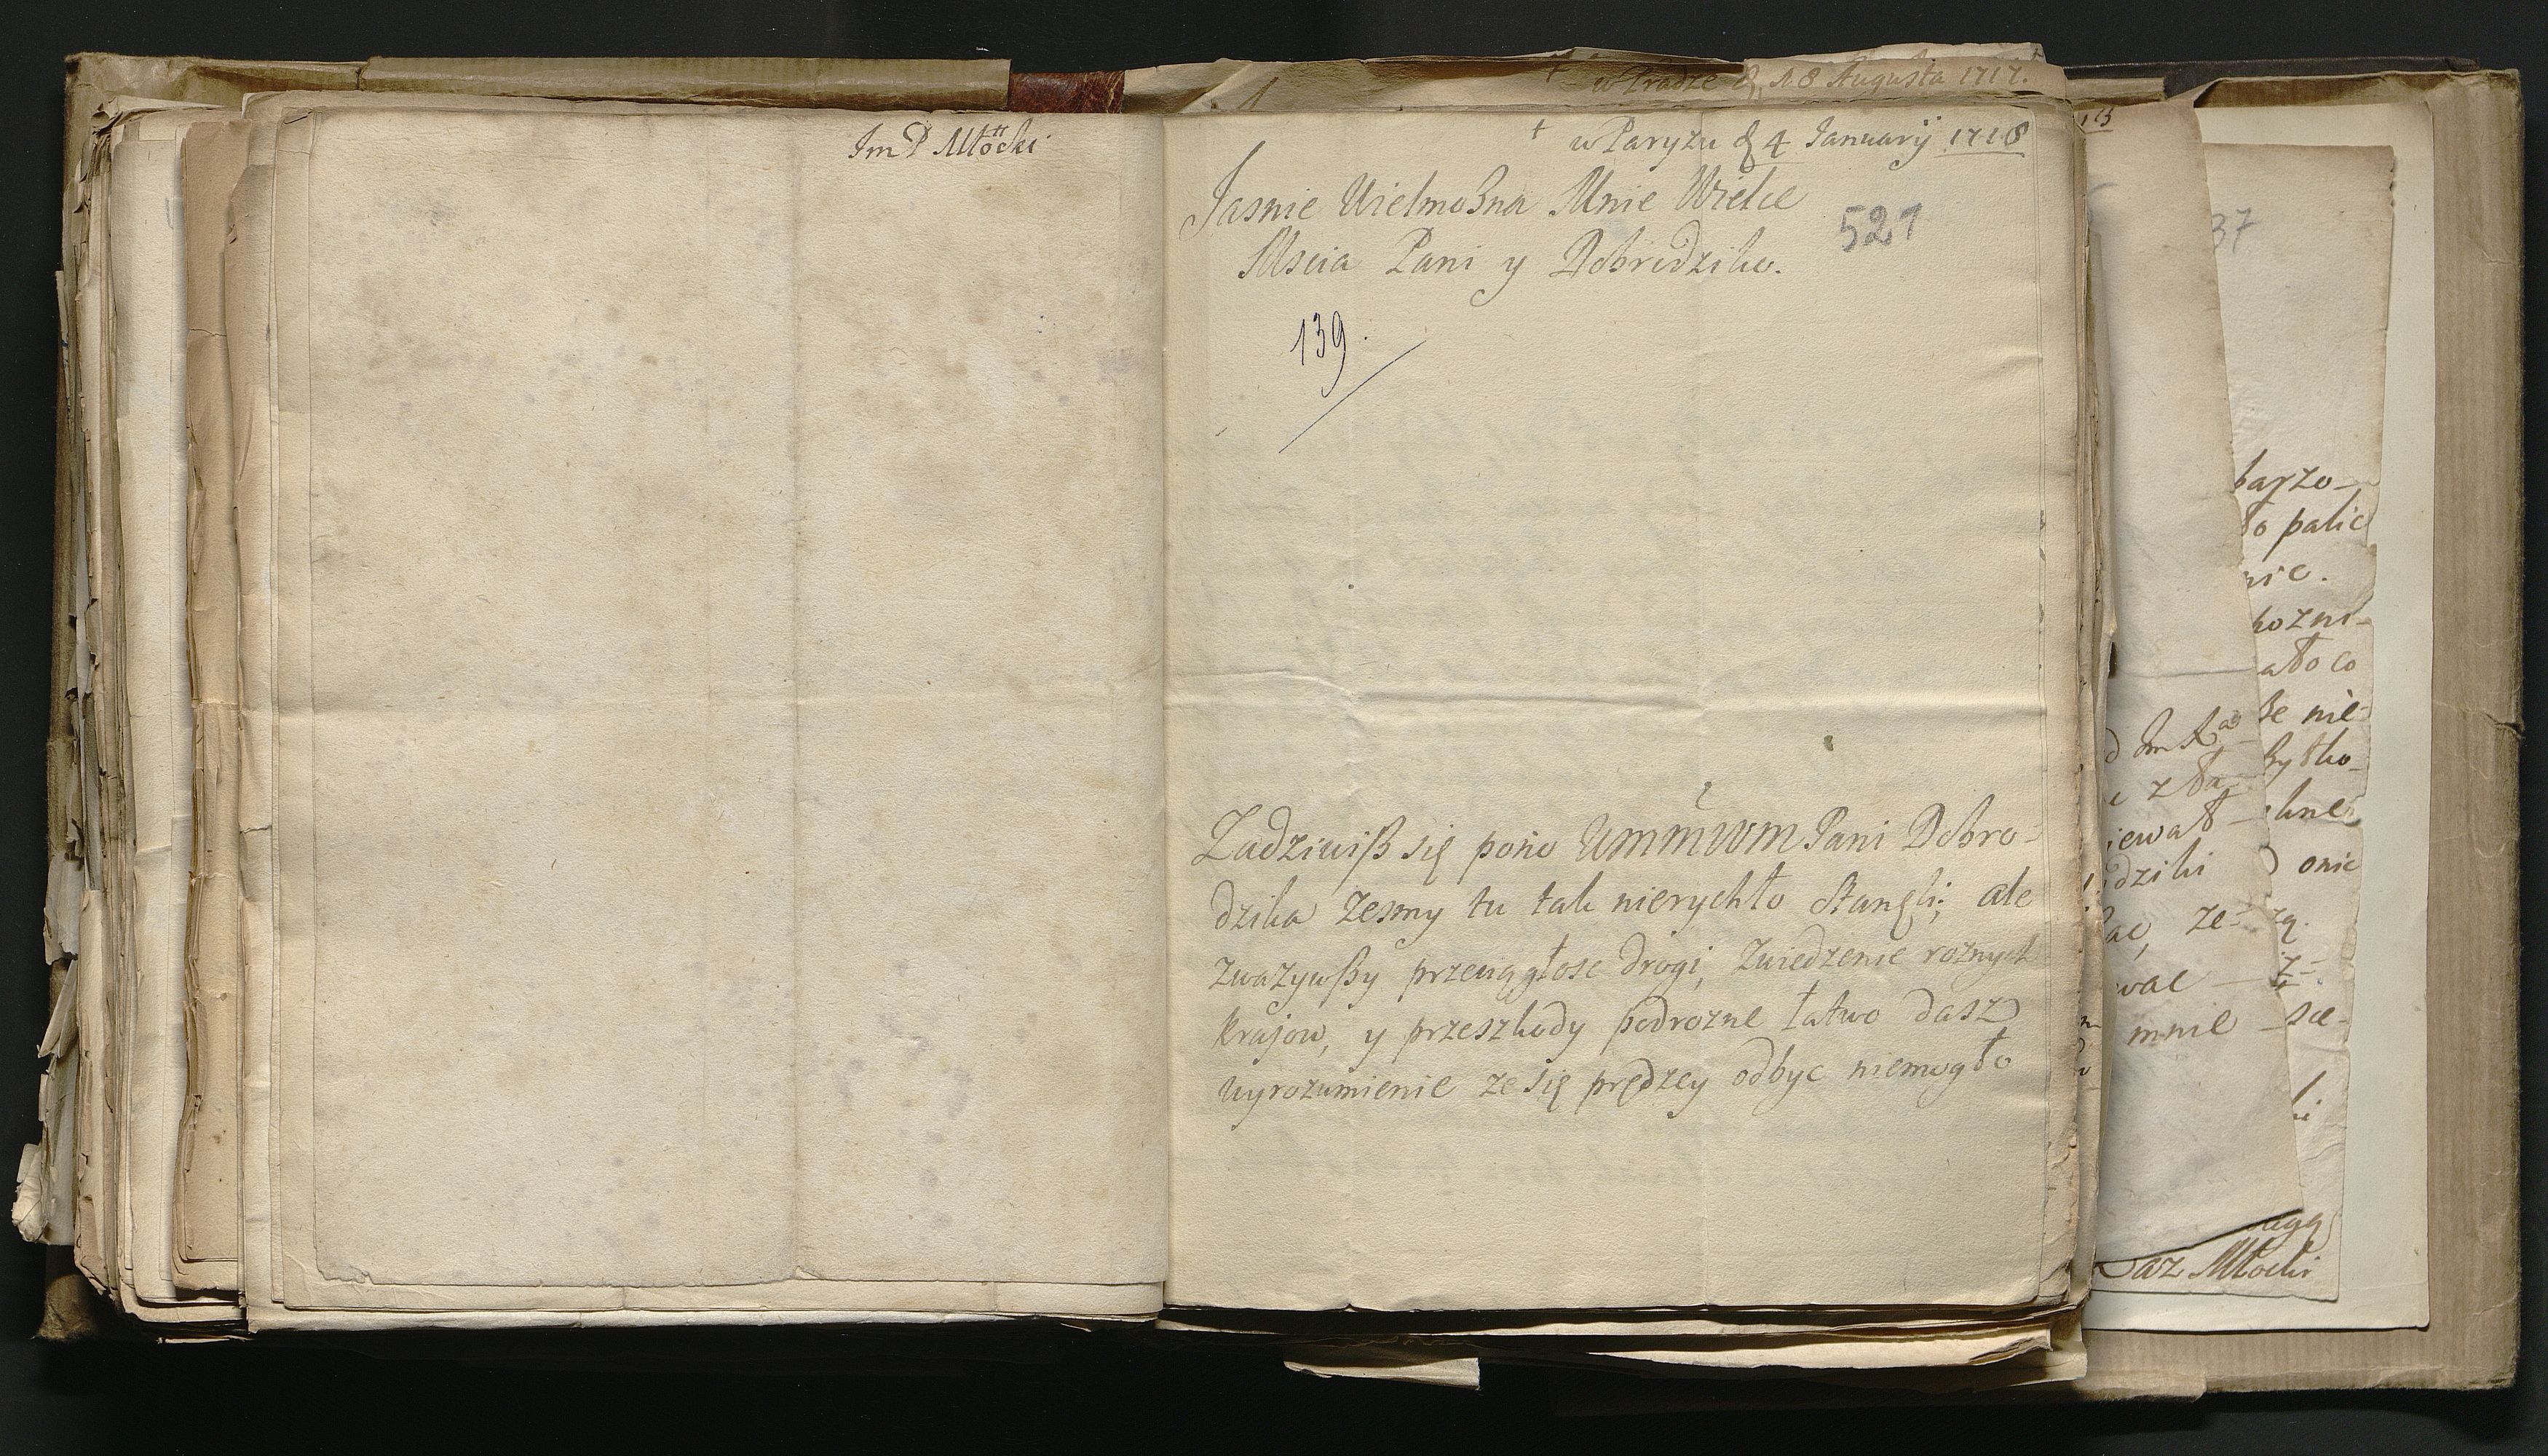 Im P Młocki
w Pradze d. 18 Augusta 1717.
† w Paryzu d 4 Januarij 1718
Jasnie Wielmoßna Mnie Wielce
Mscia Pani y Dobrodziko.
521
139.
Zadziwiß się pono WMMWM Pani Dobro=
dzika zesmy tu tak nierychło stanęli; ale
zwazywßy przeciągłosc drogi, zwiedzenie roznych
krajow, y przeszkody podrozne łatwo dasz
wyrozumienie ze się prędzey odbyc niemogło
37
barzo
to palic
nie.
ało co
ße nie
d Im
iewał
dziki
onic
ac, ze
wac
mnie
Kaz Młocki